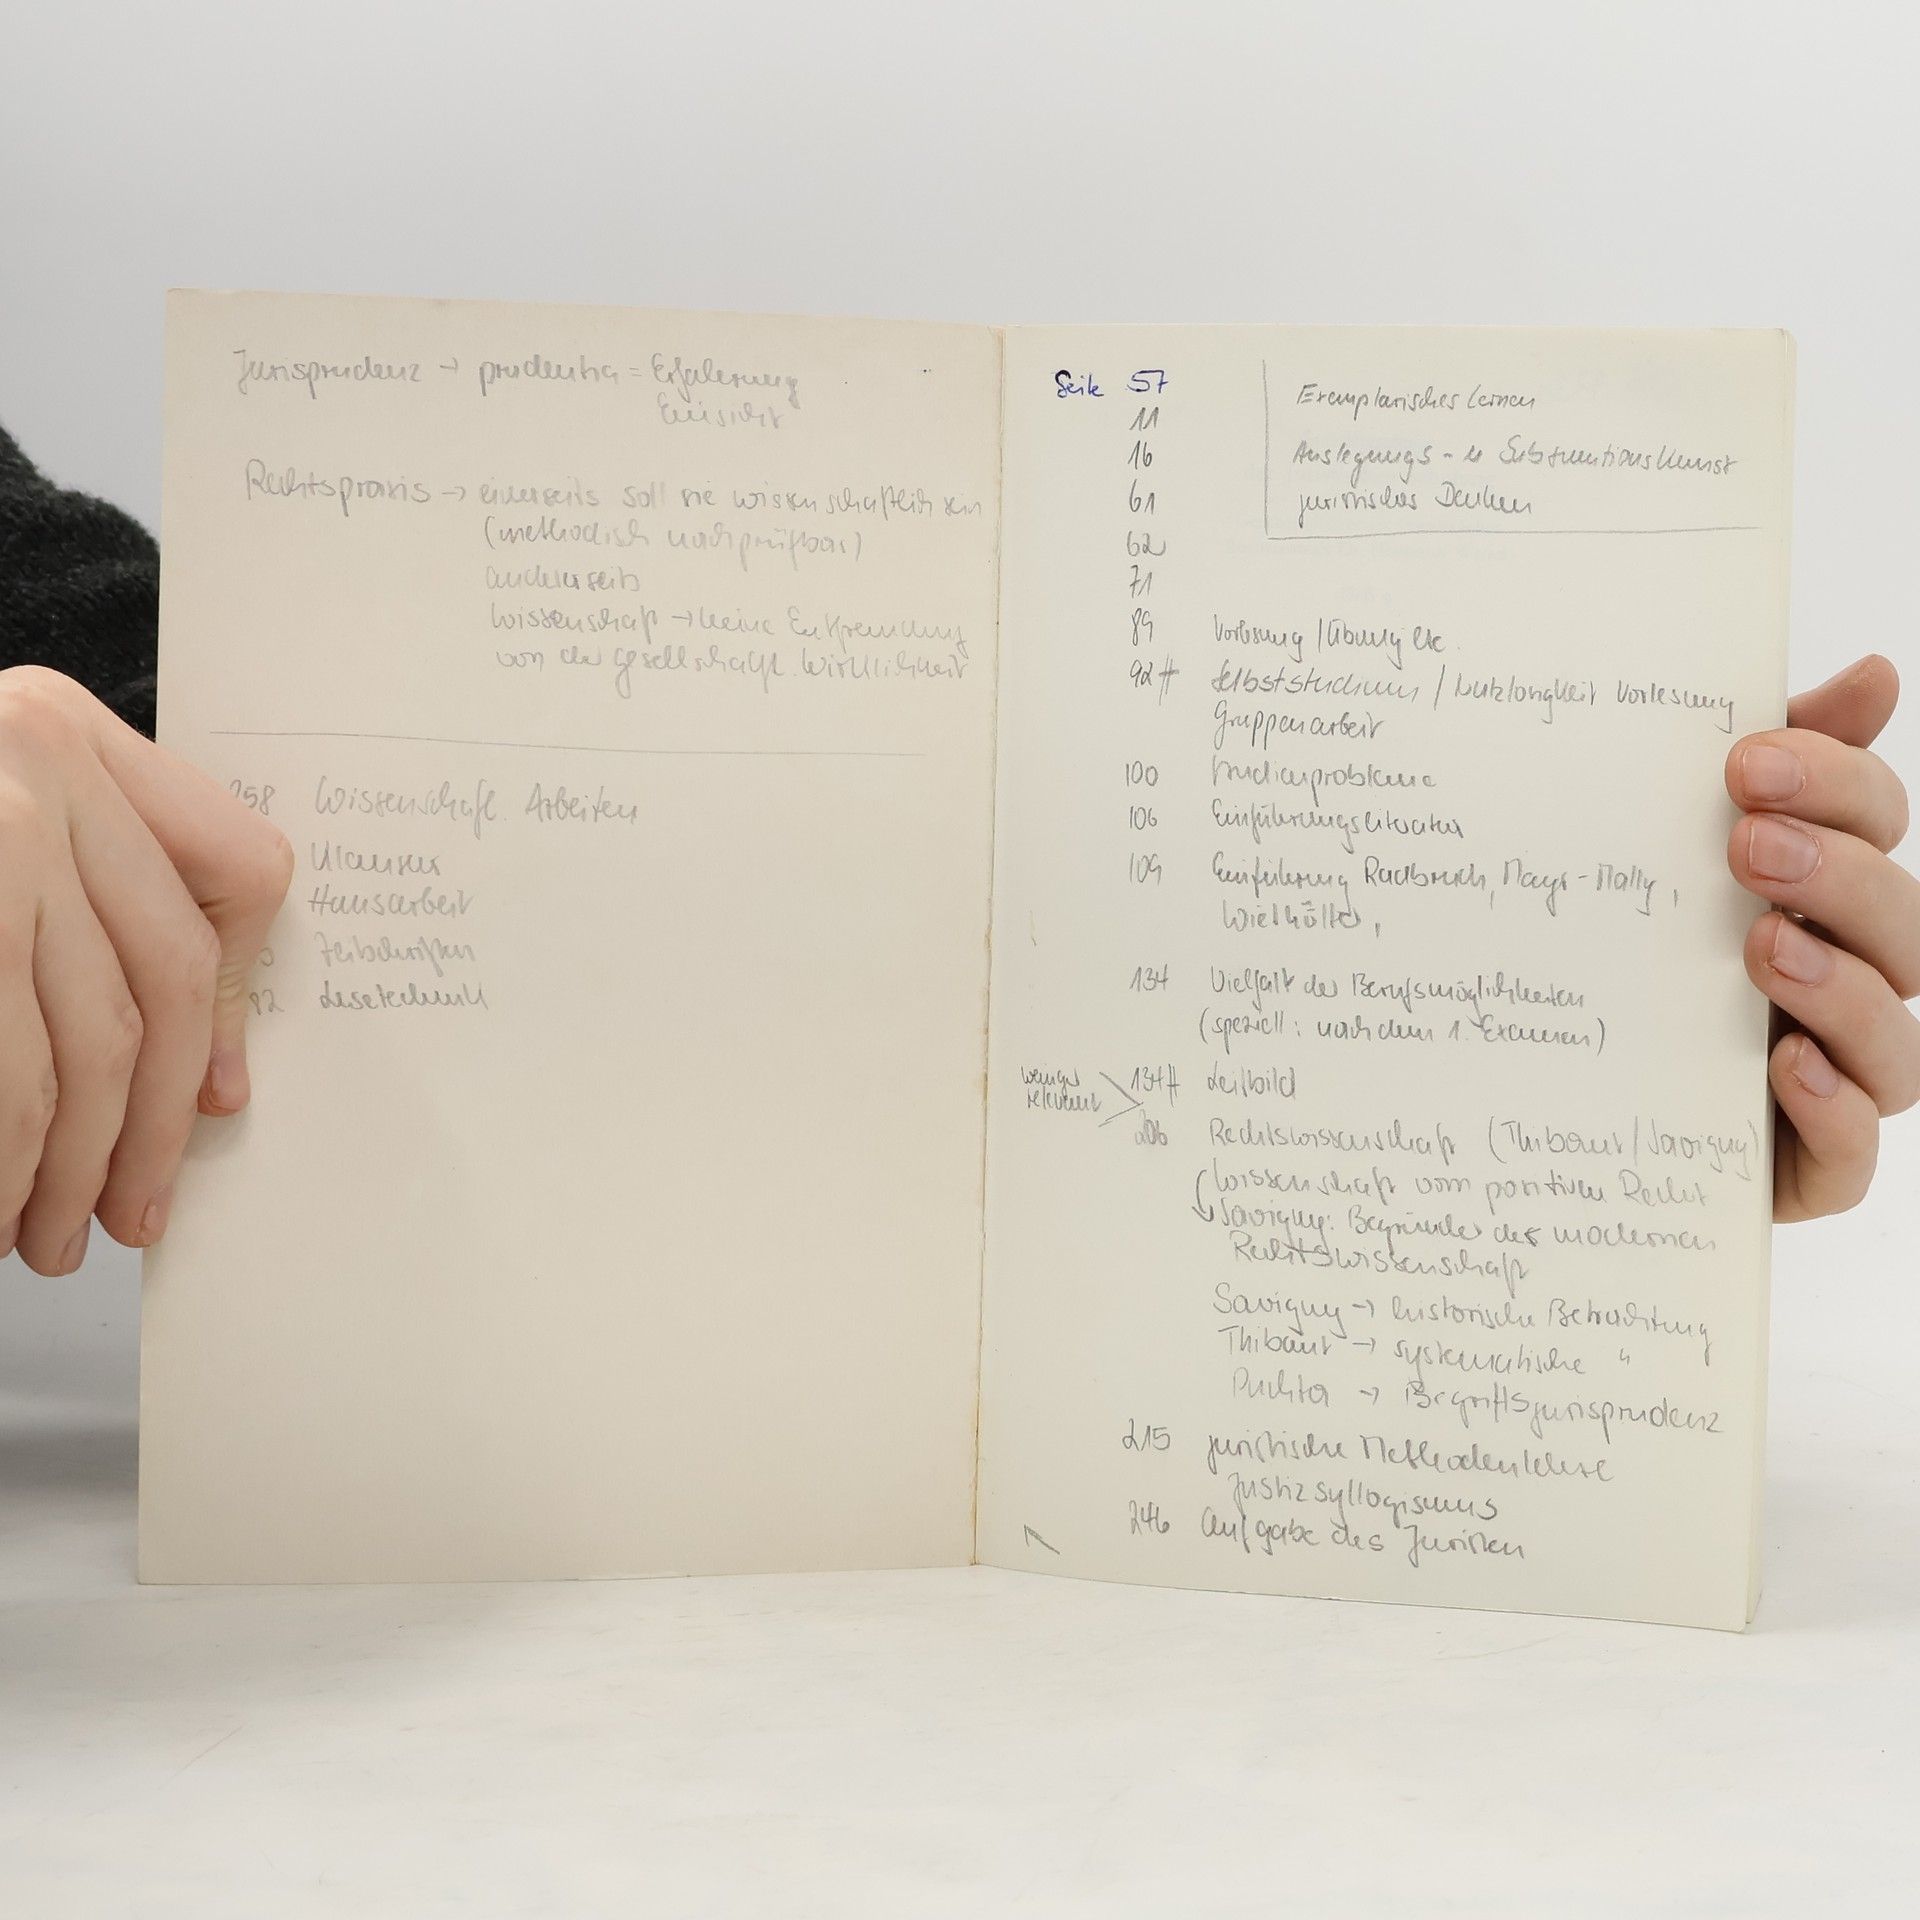 Jurisprudenz → prudentia = Erfahrung
Einsicht
Rechtspraxis → einerseits soll sie wissenschaftlich sein
(methodisch nachprüfbar)
andererseits
Wissenschaft → keine Entfremdung
von der gesellschaftl. Wirklichkeit
258 Wissenschaftl. Arbeiten
Klausur
Hausarbeit
0 Zeitschriften
82 Lesetechnik
Seite 57
11
16
61
62
71
Exemplarisches Lernen
Auslegungs- u Subsumtionskunst
juristisches Denken
89 Vorlesung / Übung etc.
92 ff Selbststudium / Nutzlosigkeit Vorlesung
Gruppenarbeit
100 Studienprobleme
106 Einführungsliteratur
109 Einführung Radbruch, Mayer-Maly,
Wiethölter,
134 Vielfalt der Berufsmöglichkeiten
(speziell: nach dem 1. Examen)
weniger
relevant
134 ff Leitbild
206 Rechtswissenschaft (Thibaut / Savigny)
Wissenschaft vom positiven Recht
Savigny: Begründer der modernen
Rechtswissenschaft
Savigny → historische Betrachtung
Thibaut → systematische "
Puchta → Begriffsjurisprudenz
215 juristische Methodenlehre
Justizsyllogismus
246 Aufgabe des Juristen